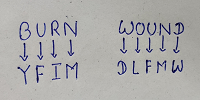 BURN WOUND
↓ ↓ ↓ ↓ ↓ ↓ ↓ ↓ ↓
YFIM DLFMW